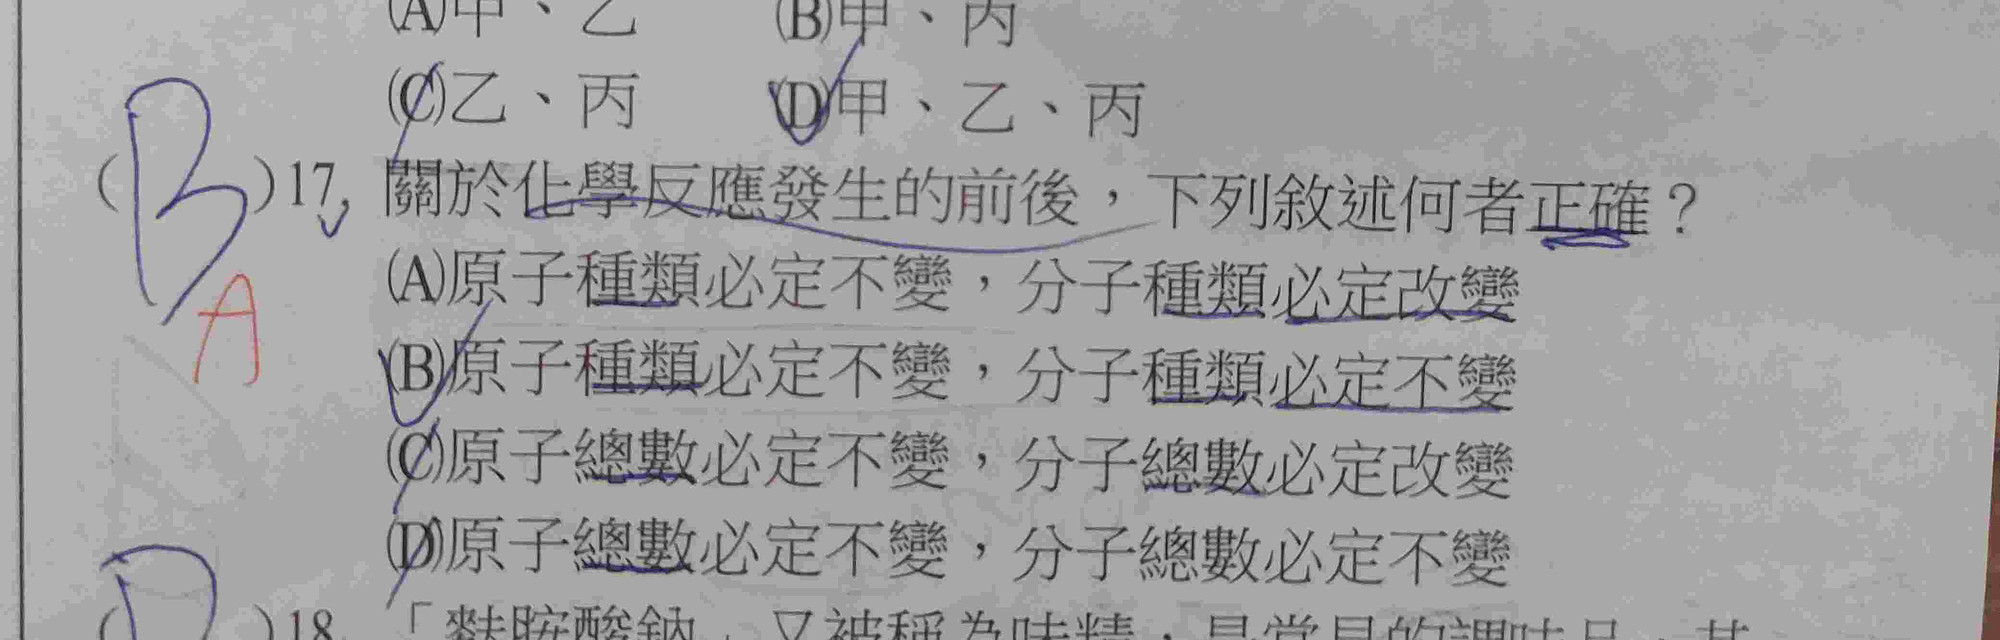 (A)甲、乙 (B)甲、丙
(C)乙、丙 (D)甲、乙、丙
(B)17. 關於化學反應發生的前後，下列敘述何者正確？
A
(A)原子種類必定不變，分子種類必定改變
(B)原子種類必定不變，分子種類必定不變
(C)原子總數必定不變，分子總數必定改變
(D)原子總數必定不變，分子總數必定不變
( )18. 「麩胺酸鈉」又被稱為味精，是常見的調味品，其